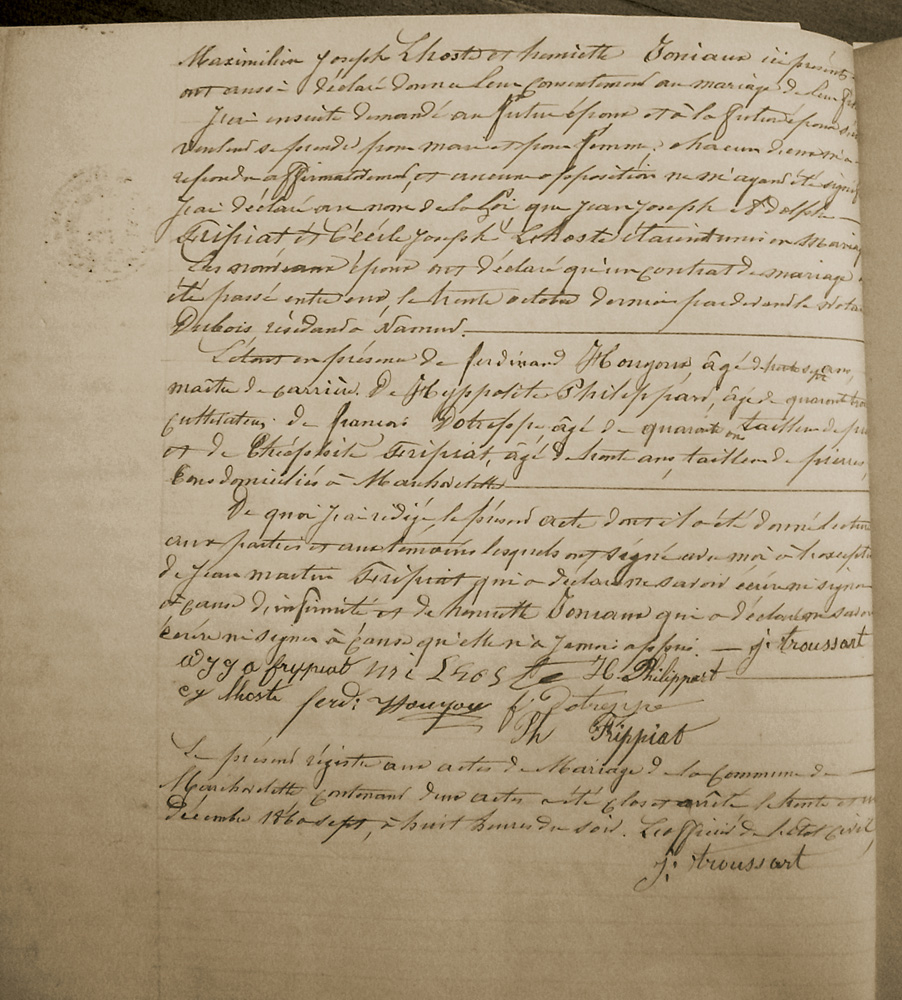 Maximilien Joseph Lhoste et henriette Toniaux ici présents
ont aussi déclaré donner leur consentement au mariage de leur
J'ai ensuite demandé au futur époux et à la future épouse s'ils
veulent se prendre pour mari et pour femme, chacun d'eux m'a
répondu affirmativement, et aucune opposition ne m'ayant été
j'ai déclaré au nom de la Loi que Jean Joseph Adolphe
Fripiat et Cécile Joseph Lhoste étaient unis en Mariage
Les époux ont déclaré qu'un contrat de mariage a
été passé entre eux, le trente octobre dernier pardevant le Notaire
Dubois résidant à Namur.
en présence de ferdinand Houyoux, âgé de
maître de carrière. De Hyppolite Philippart, âgé de quarante trois
cultivateur; de francois Dotreppe âgé de quarante tailleur de
et de Théophile Fripiat, âgé de trente ans, tailleur de pierres,
tous domiciliés à Marchovelette
De quoi j'ai rédigé le présent acte dont il a été donné lecture
aux parties et aux témoins lesquels ont signé avec moi à l'exception
de Jean martin Fripiat qui a déclaré ne savoir écrire ni signer
à cause d'infirmité et de henriette Toniaux qui a déclaré ne savoir
écrire ni signer à cause qu'elle n'a jamais appris. — J: troussart
frypiat H. Philippart
Lhoste ferd: Houyou f: Dotreppe
Th Frippiat
Le présent régistre aux actes de Mariage de la Commune de
Marchovelette contenant deux actes a été clos et arrêté le trente et un
décembre 1860 sept, à huit heures du soir. L'officier de l'état Civil,
J: troussart